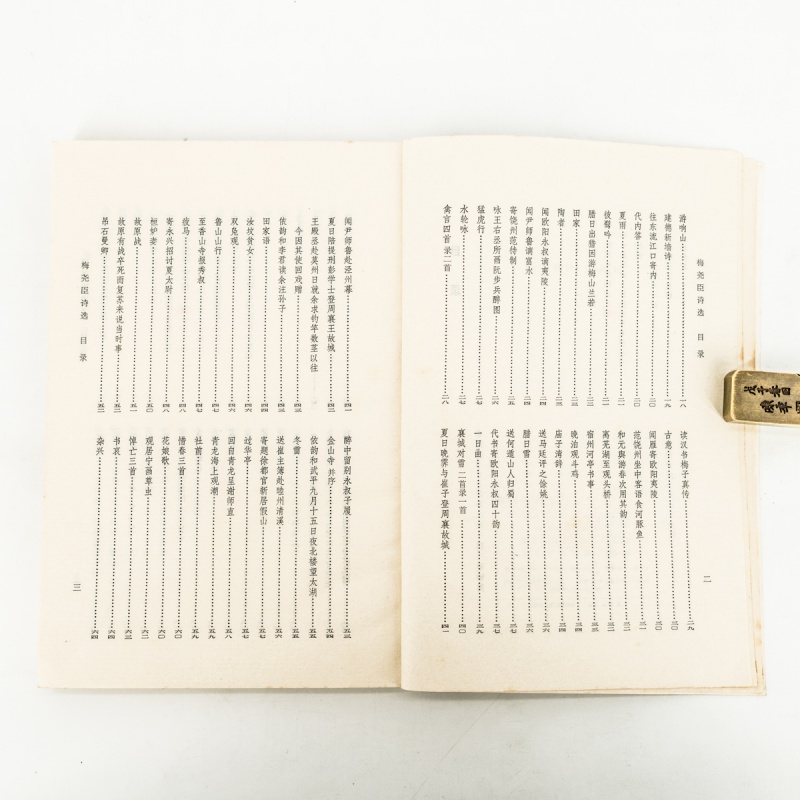 梅尧臣诗选 目录
二
游响山……一八
建德新墙诗……一九
往东流江口寄内……二〇
代内答……二〇
夏雨……二一
彼鴷吟……二一
腊日出猎因游梅山兰若……二二
田家……二三
陶者……二三
闻欧阳永叔谪夷陵……二四
闻尹师鲁谪富水……二四
寄饶州范待制……二五
咏王右丞所画阮步兵醉图……二六
猛虎行……二七
水轮咏……二七
禽言四首录二首……二八
读汉书梅子真传……二九
古意……三〇
闻雁寄欧阳夷陵……三〇
范饶州坐中客语食河豚鱼……三一
和元舆游春次用其韵……三二
离芜湖至观头桥……三二
宿州河亭书事……三三
晚泊观斗鸡……三四
庙子湾辞……三四
送马廷评之馀姚……三六
腊日雪……三六
送何遁山人归蜀……三七
代书寄欧阳永叔四十韵……三七
一日曲……三九
襄城对雪二首录一首……四〇
夏日晚霁与崔子登周襄故城……四一
闻尹师鲁赴泾州幕……四一
夏日陪提刑彭学士登周襄王故城……四二
王殿丞赴莫州日就余求钓竿数茎以往
今因其使回戏赠……四三
依韵和李君读余注孙子……四三
田家语……四四
汝坟贫女……四五
双凫观……四六
鲁山山行……四七
至香山寺报秀叔……四七
夜马……四八
寄永兴招讨夏太尉……四八
桓妒妻……五〇
故原战……五一
故原有战卒死而复苏来说当时事……五二
吊石曼卿……五二
醉中留别永叔子履……五三
金山寺并序……五四
依韵和武平九月十五日夜北楼望太湖……五五
冬雷……五五
送崔主簿赴睦州清溪……五六
寄题徐都官新居假山……五七
过华亭……五七
回自青龙呈谢师直……五八
青龙海上观潮……五九
社前……五九
惜春三首……六〇
花娘歌……六〇
观居宁画草虫……六二
悼亡三首……六三
书哀……六四
杂兴……六四
梅尧臣诗选 目录
三